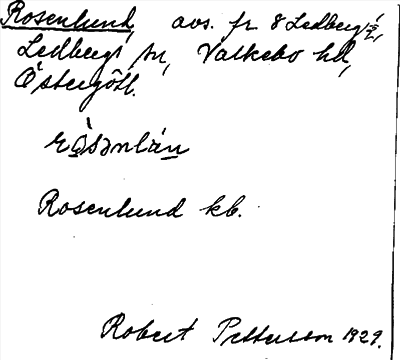 Rosenlund, avs. fr 8 Ledberg ½,
Ledbergs sn, Valkebo hd,
Östergötl.
rọ̀sənlán
Rosenlund kb.
Robert Pettersson 1929.